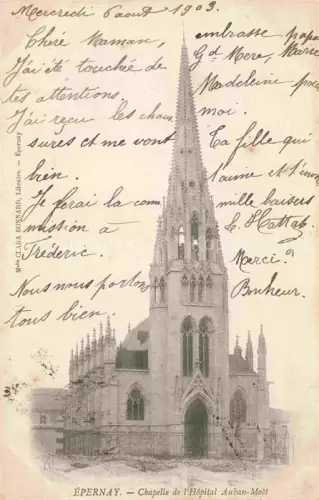 Mercredi 6 août 1903.
Chère Maman,
J'ai été touchée de
tes attentions.
J'ai reçu les chaus
sures et me vont
bien.
Je ferai la com
mission à
Fréderic.
Nous nous portons
tous bien.
embrasse papa
Gd Mère, Marie
Madeleine pour
moi.
Ta fille qui
t'aime et t'envoie
mille baisers
Merci.
Bonheur.
Mlle CLARA BONNARD, Libraire. — Épernay
ÉPERNAY. — Chapelle de l'Hôpital Auban-Moët